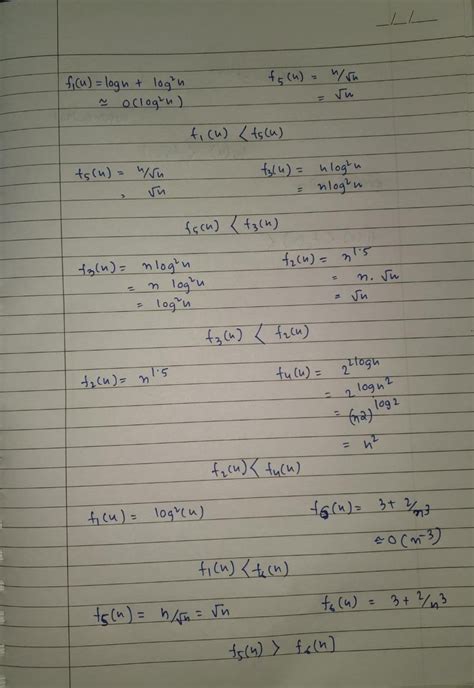 _/_/_
f₁(n) = logn + log²n    f₅(n) = n/√n
≈ O(log²n)    = √n
f₁(n) < f₅(n)
f₅(n) = n/√n    f₃(n) = nlog²n
, √n    = nlog²n
f₅(n) < f₃(n)
f₃(n) = nlog²n    f₂(n) = n^1.5
= n log²n    = n. √n
= log²n    = √n
f₃(n) < f₂(n)
f₂(n) = n^1.5    f₄(n) = 2^2logn
= 2^logn²
= (n2)^log2
= n²
f₂(n) < f₄(n)
f₁(n) = log²(n)    f₆(n) = 3 + 2/n³
≈ O(n⁻³)
f₁(n) < f₆(n)
f₅(n) = n/√n = √n    f₆(n) = 3 + 2/n³
f₅(n) > f₆(n)